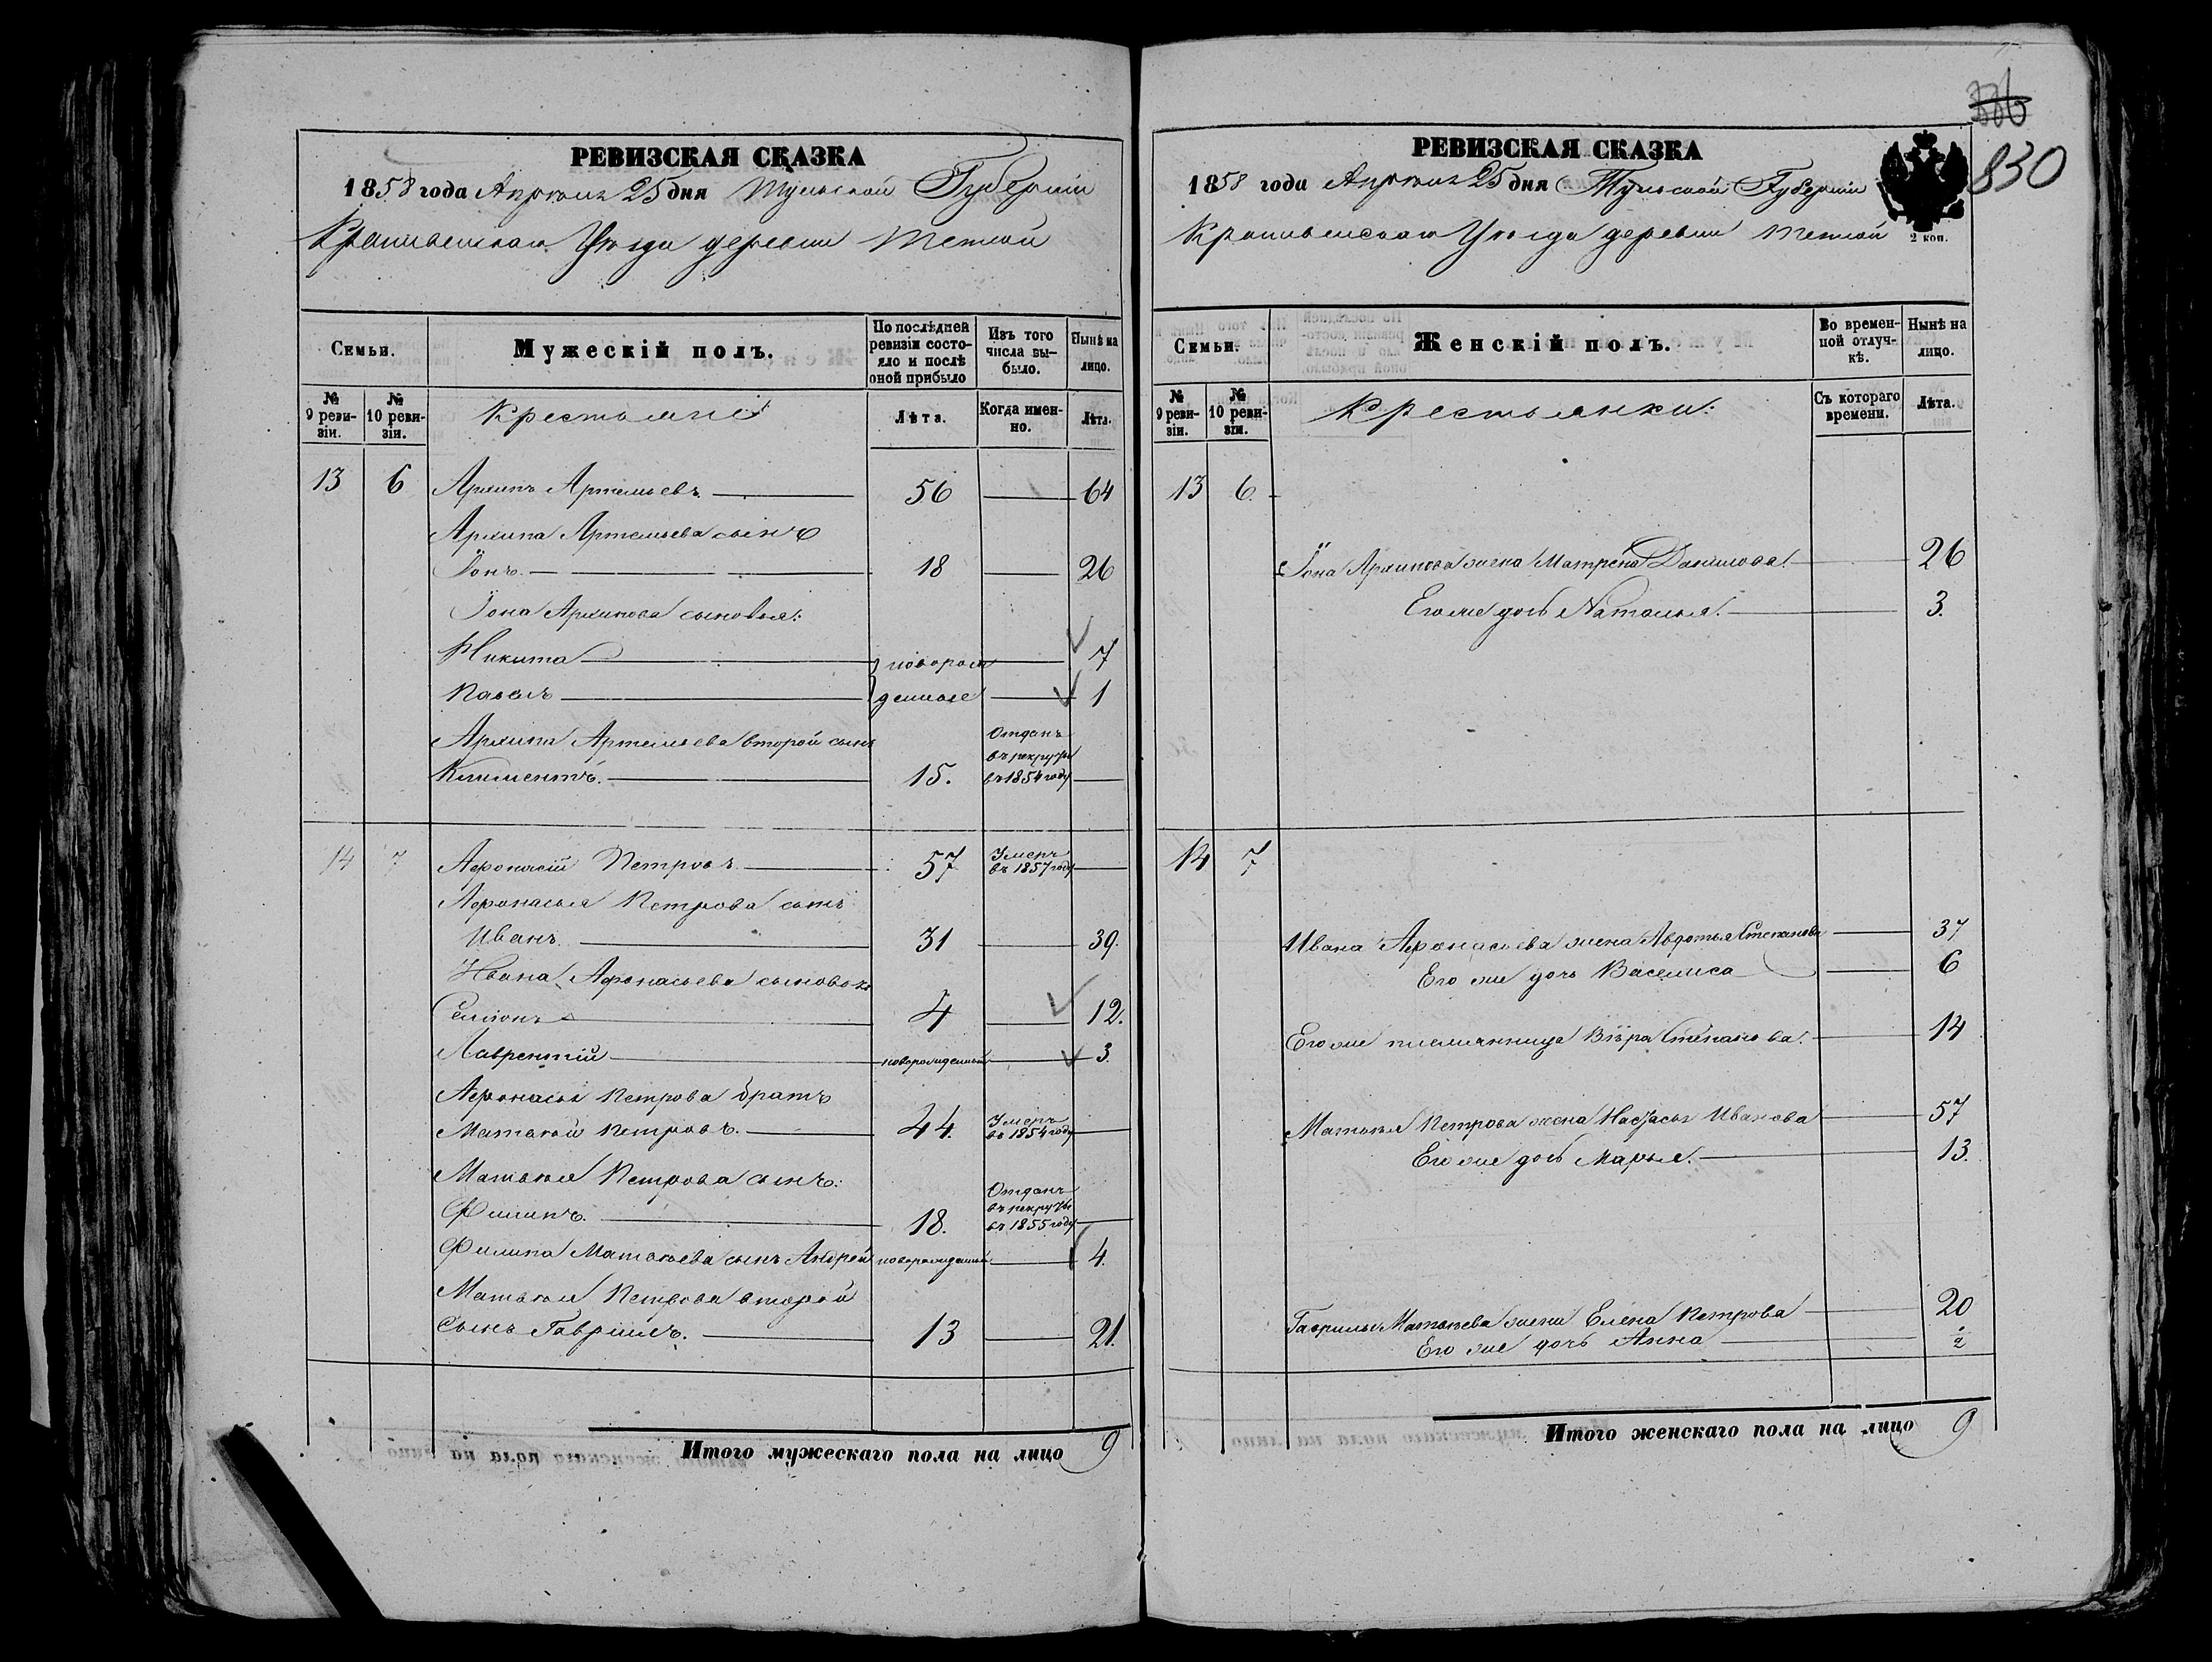 РЕВИЗСКАЯ СКАЗКА
1858 года Апрѣля 25 дня Тульской Губерніи
Крапивенскаго Уѣзда деревни Теплой
Семьи.
Мужескій полъ.
По послѣдней ревизіи состояло и послѣ оной прибыло
Изъ того числа выбыло.
Нынѣ на лицо.
№ 9 ревизіи.
№ 10 ревизіи.
Крестьяне
Лѣта.
Когда именно.
Лѣта.
13 6 Архипъ Артемьевъ. 56 64
Архипа Артемьева сынъ
Іонъ. 18 26
Іона Архипова сыновья:
Никита новорож 7
Павелъ денные 1
Архипа Артемьева второй сынъ
Климентъ. 15. Отданъ въ рекруты въ 1854 году
14 7 Афонасій Петровъ 57 Умеръ въ 1857 году
Афонасья Петрова сынъ
Иванъ. 31 39.
Ивана Афонасьева сыновья
Семіонъ 4 12.
Лаврентій новорожденный 3.
Афонасья Петрова братъ
Матвѣй Петровъ. 44. Умеръ въ 1854 году
Матвѣя Петрова сынъ:
Филипъ. 18. Отданъ въ рекруты въ 1855 году
Филипа Матвѣева сынъ Андрей новорожденный 4.
Матвѣя Петрова второй
сынъ Гаврилъ. 13 21.
Итого мужескаго пола на лицо 9
336
830
РЕВИЗСКАЯ СКАЗКА
1858 года Апрѣля 25 дня Тульской Губерніи
Крапивенскаго Уѣзда деревни Теплой
2 коп.
Семьи.
Женскій полъ.
Во временной отлучкѣ.
Нынѣ на лицо.
№ 9 ревизіи.
№ 10 ревизіи.
Крестьянки:
Съ котораго времени.
Лѣта.
13 6.
Іона Архипова жена Матрена Данилова. 26
Его же дочь Наталья. 3.
14 7
Ивана Афонасьева жена Авдотья Степанова 37
Его же дочь Васелиса 6
Его же племянница Вѣра Степанова. 14
Матвѣя Петрова жена Настасья Иванова 57
Его же дочь Марья. 13.
Гаврилы Матвѣева жена Елена Петрова 20
Его же дочь Анна 2
Итого женскаго пола на лицо 9